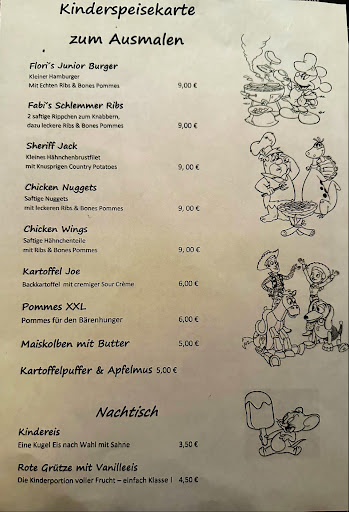 Kinderspeisekarte
zum Ausmalen
Flori's Junior Burger
Kleiner Hamburger
Mit Echten Ribs & Bones Pommes 9,00 €
Fabi's Schlemmer Ribs
2 saftige Rippchen zum Knabbern,
dazu leckere Ribs & Bones Pommes 9,00 €
Sheriff Jack
Kleines Hähnchenbrustfilet
mit Knusprigen Country Potatoes 9,00 €
Chicken Nuggets
Saftige Nuggets
mit leckeren Ribs & Bones Pommes 9,00 €
Chicken Wings
Saftige Hähnchenteile
mit Ribs & Bones Pommes 9,00 €
Kartoffel Joe
Backkartoffel mit cremiger Sour Crème 6,00 €
Pommes XXL
Pommes für den Bärenhunger 6,00 €
Maiskolben mit Butter 5,00 €
Kartoffelpuffer & Apfelmus 5,00 €
Nachtisch
Kindereis
Eine Kugel Eis nach Wahl mit Sahne 3,50 €
Rote Grütze mit Vanilleeis
Die Kinderportion voller Frucht – einfach Klasse ! 4,50 €